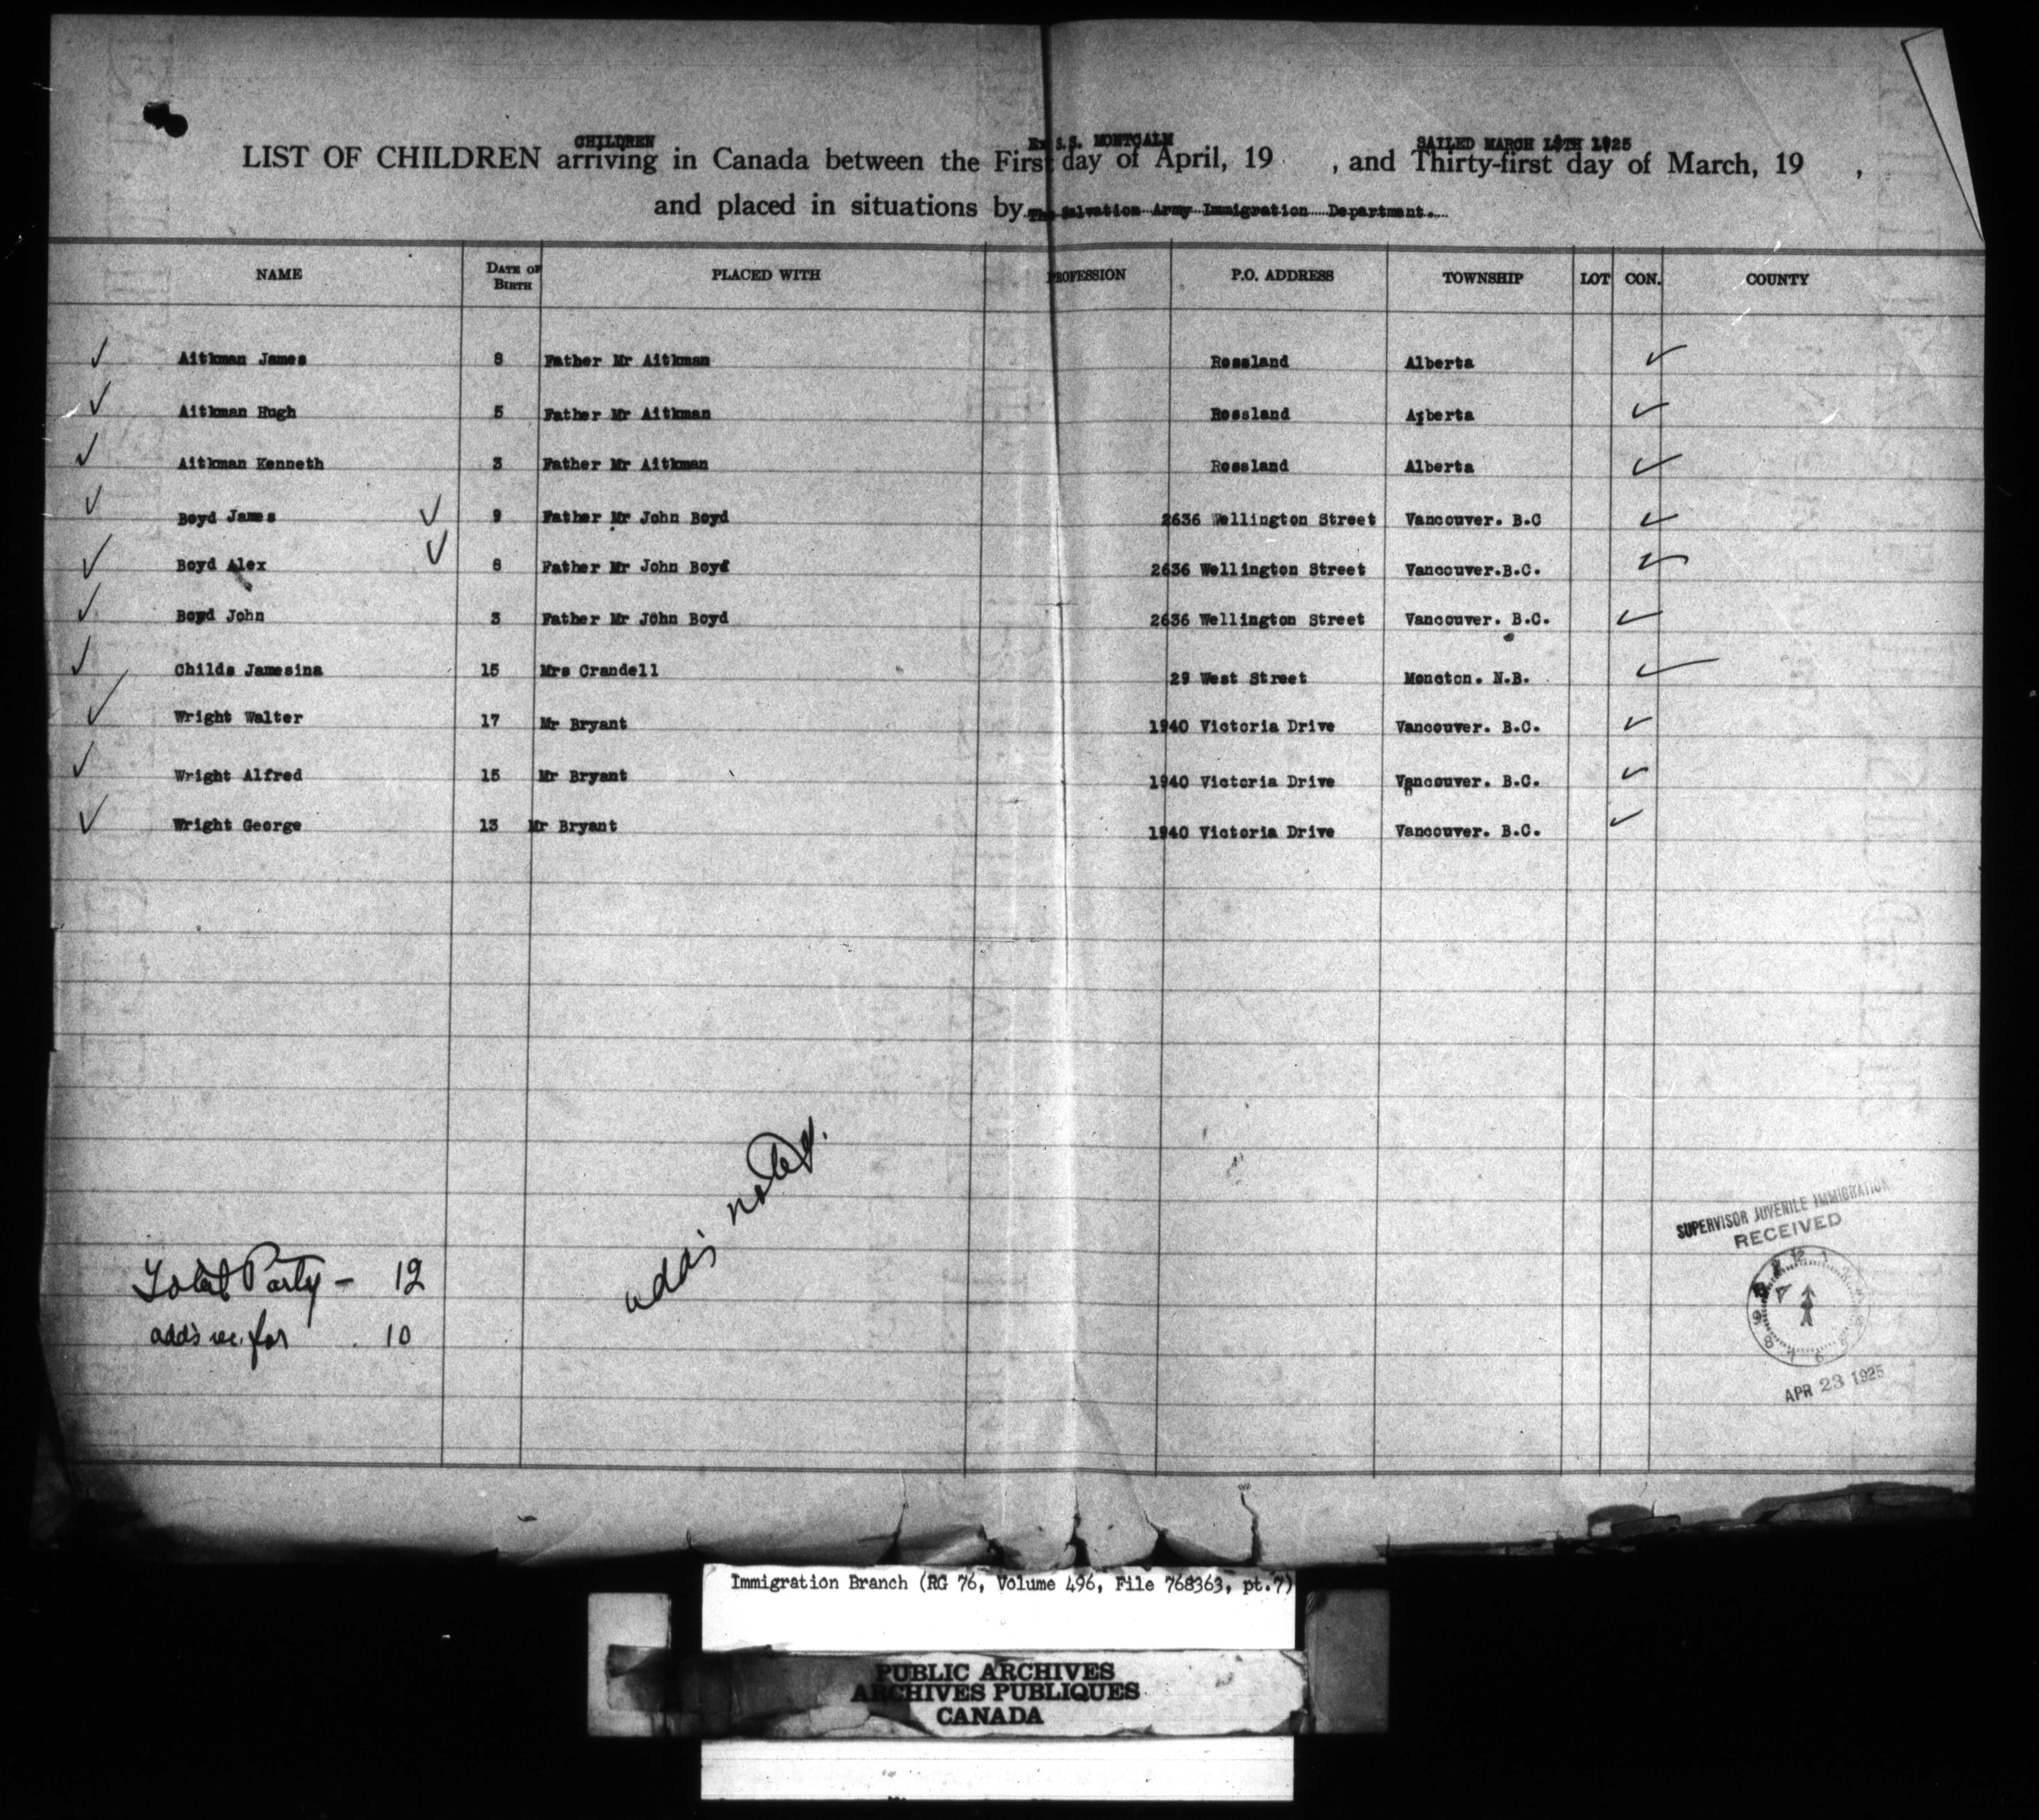 CHILDREN Ex S.S. MONTCALM SAILED MARCH 1925
LIST OF CHILDREN arriving in Canada between the First day of April, 19 , and Thirty-first day of March, 19 ,
and placed in situations by The Salvation Army Immigration Department.
NAME DATE OF BIRTH PLACED WITH PROFESSION P.O. ADDRESS TOWNSHIP LOT CON. COUNTY
✓ Aitkman James 8 Father Mr Aitkman Rossland Alberta ✓
✓ Aitkman Hugh 5 Father Mr Aitkman Rossland Alberta ✓
✓ Aitkman Kenneth 3 Father Mr Aitkman Rossland Alberta ✓
✓ Boyd James ✓ 9 Father Mr John Boyd 2636 Wellington Street Vancouver. B.C ✓
✓ Boyd Alex ✓ Father Mr John Boyd 2636 Wellington Street Vancouver.B.C. ✓
✓ Boyd John 3 Father Mr John Boyd 2636 Wellington Street Vancouver. B.C. ✓
✓ Childs Jamesina 15 Mrs Crandell 29 West Street Moncton. N.B. ✓
✓ Wright Walter 17 Mr Bryant 1940 Victoria Drive Vancouver. B.C. ✓
✓ Wright Alfred 15 Mr Bryant 1940 Victoria Drive Vancouver. B.C. ✓
✓ Wright George 13 Mr Bryant 1940 Victoria Drive Vancouver. B.C. ✓
add's noted.
Total Party - 12
add's rec. for 10
SUPERVISOR JUVENILE IMMIGRATION
RECEIVED
APR 23 1925
Immigration Branch (RG 76, Volume 496, File 768363, pt.7)
PUBLIC ARCHIVES
ARCHIVES PUBLIQUES
CANADA